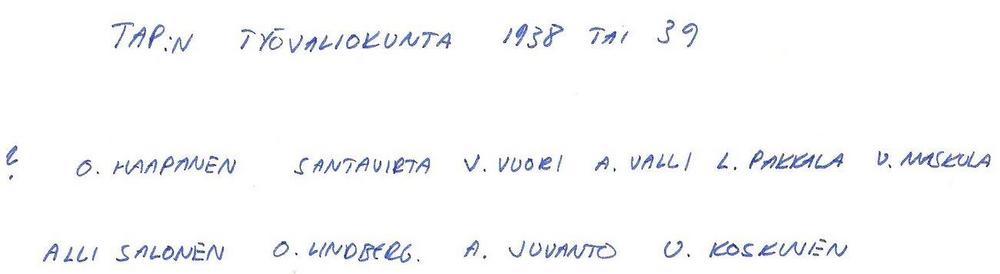 TAP:N TYÖVALIOKUNTA 1938 TAI 39
? O. HAAPANEN SANTAVIRTA V. VUORI A. VALLI L. PAKKALA U. MASKULA
ALLI SALONEN O. LINDBERG. A. JUVANTO U. KOSKINEN